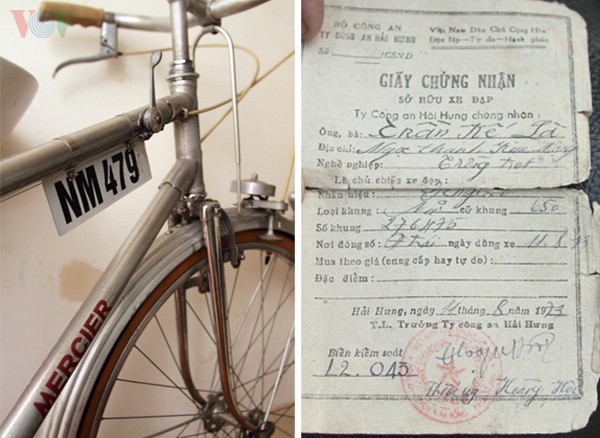 VOV
NM 479
MERCIER
BỘ CÔNG AN
TY CÔNG AN HẢI HƯNG
Số /CSND
Việt Nam Dân Chủ Cộng Hòa
Độc lập - Tự do - Hạnh phúc
GIẤY CHỨNG NHẬN
SỞ HỮU XE ĐẠP
Ty Công an Hải Hưng chứng nhận
Ông, bà: Trần Kế
Địa chỉ: Ngọc Thanh Kim
Nghề nghiệp: Trồng trọt
Là chủ chiếc xe đạp:
Nhãn hiệu:
Loại khung: cỡ khung 650
Số khung 276475
Nơi đóng số: ngày dùng xe 11.8.73
Mua theo giá (cung cấp hay tự do):
Đặc điểm:
Hải Hưng, ngày 11 tháng 8 năm 1973
T.L. Trưởng Ty công an Hải Hưng
Biển kiểm soát
12.043
Thiếu úy Hoàng